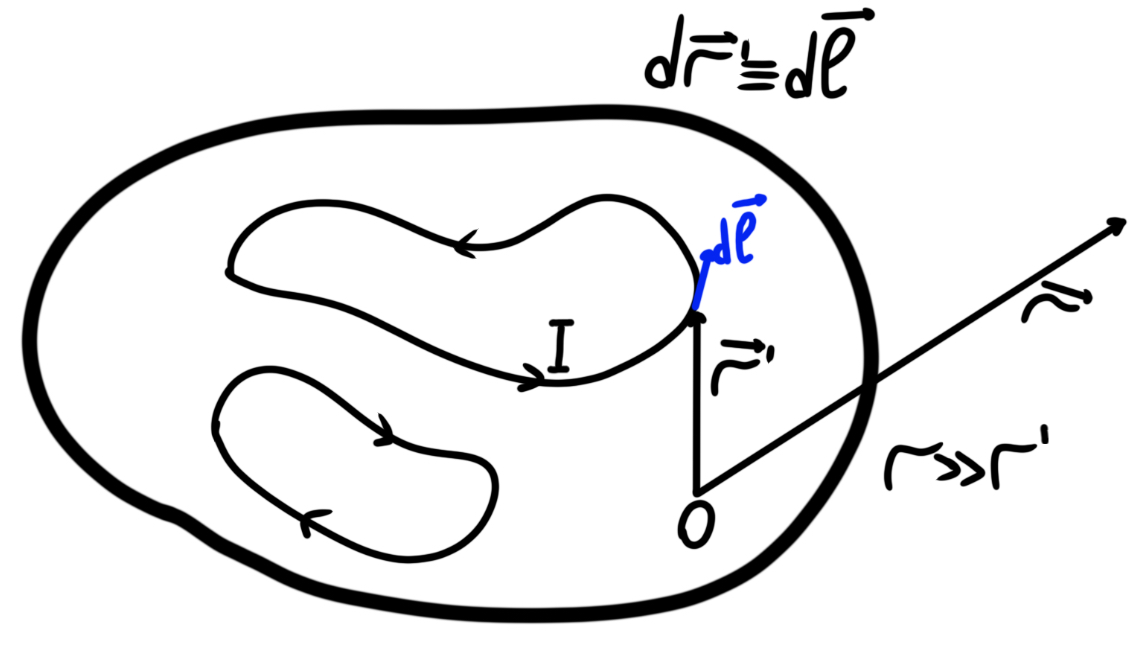 dr⃗' ≡ dℓ⃗
dℓ⃗
I
r⃗'
r⃗
r≫r'
O